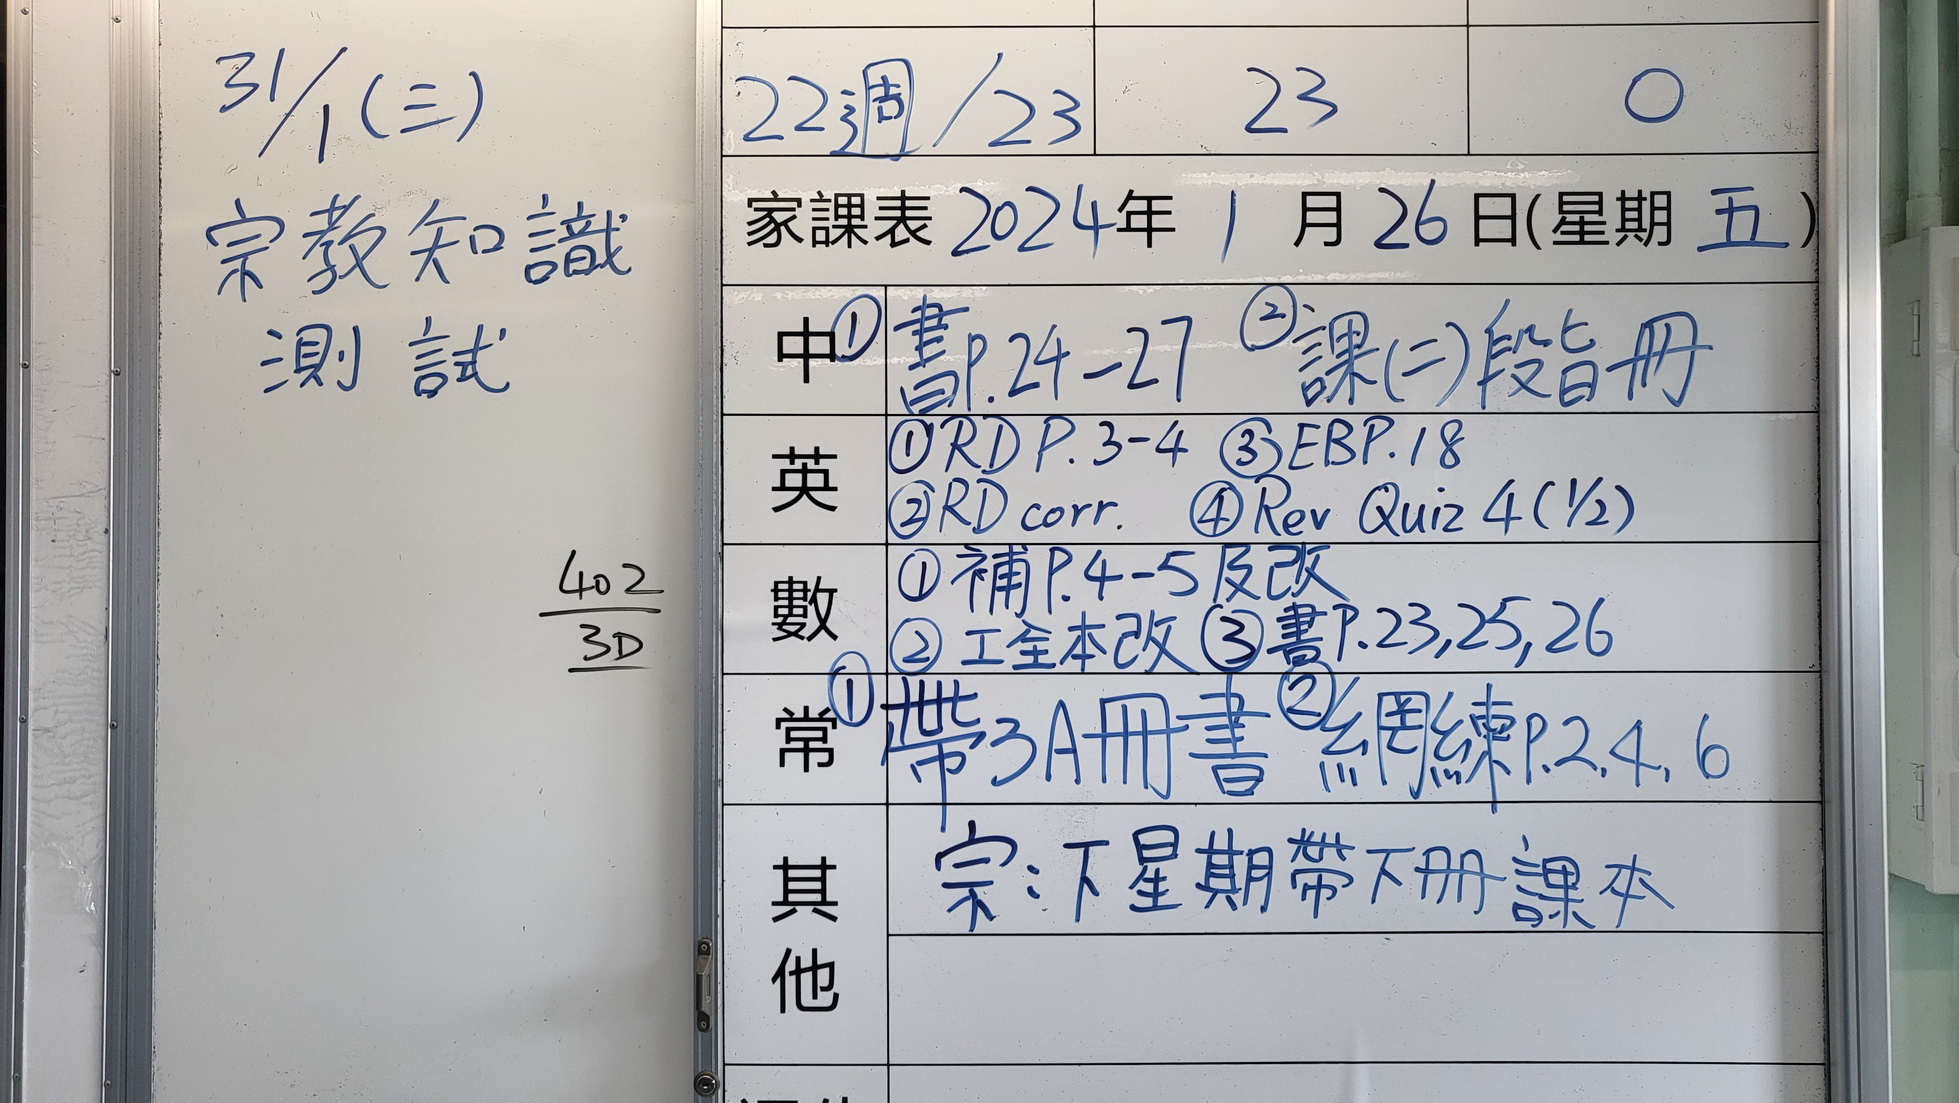 31/1(三)
宗教知識
測試
402
3D
22週/23 23 0
家課表 2024年 1 月 26 日(星期 五 )
中 ①書P.24-27 ②課(二)段旨冊
英 ①RD P.3-4 ③EBP.18
②RD corr. ④Rev Quiz 4(1/2)
數 ①補P.4-5及改
②工全本改 ③書P.23,25,26
常 ①帶3A冊書 ②網練P.2,4,6
其他 宗:下星期帶下冊課本